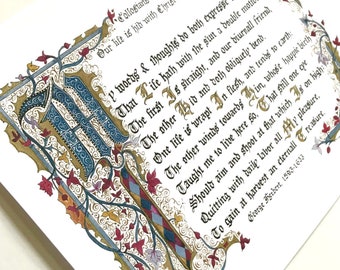 Colloſsians
Our life is hid with Chriſ
words & thoughts do both expreſs
That Life hath with the sun a double motion
The first Is straight, and our diurnall friend,
The other Hid and doth obliquely bend.
One life is wrapt In flesh, and tends to earth:
The other winds towards Him, whose happie birth
Taught me to live here so, That still one eye
Should aim and shoot at that which Is on high:
Quitting with daily labour all My pleasure,
To gain at harvest an eternall Treasure.
George Herbert 1593-1633